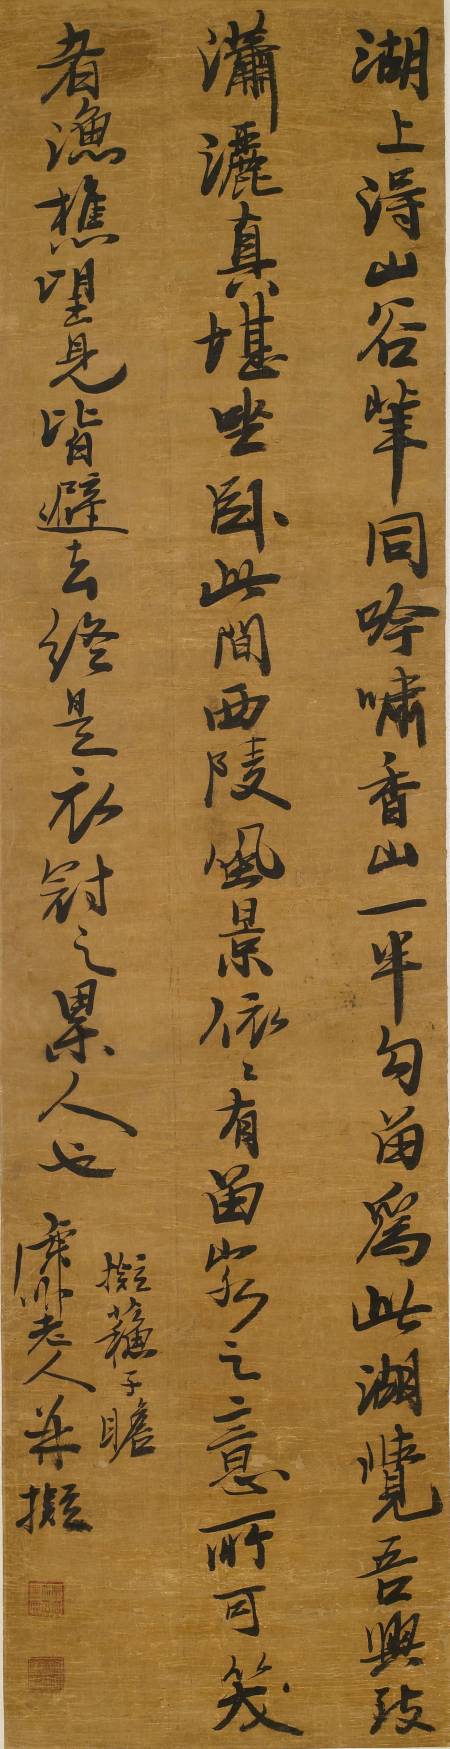 湖上得山谷輩同吟嘯香山一半勾留爲此湖覺吾興致
瀟灑真堪坐臥此間西陵風景依〻有留家之意所可笑
者漁樵望見皆避去終是衣冠之累人也
擬蘓子瞻
老人并擬